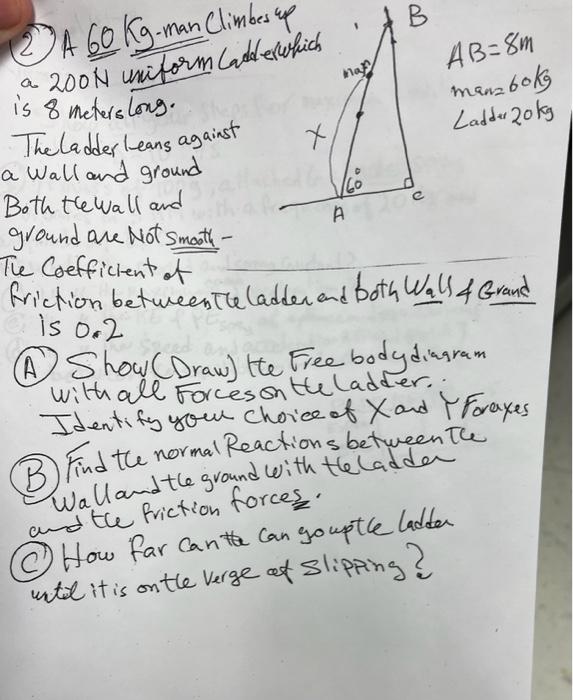 ② A 60 Kg-man Climbes up
a 200N uniform Ladder which
is 8 meters long.
The Ladder Leans against
a Wall and ground
Both the Wall and
ground are Not Smooth -
The Coefficient of
friction between The ladder and both Wall & Grand
is 0.2
B
AB = 8m
man = 60kg
Ladder 20kg
man
X
60°
A
C
Ⓐ Show (Draw) the Free body diagram
with all Forces on the Ladder.
Identify your Choice of X and Y For axes
Ⓑ Find the normal Reactions between The
Wall and the ground with the Ladder
and the friction forces.
Ⓒ How far can the can go up the ladder
until it is on the verge of slipping?